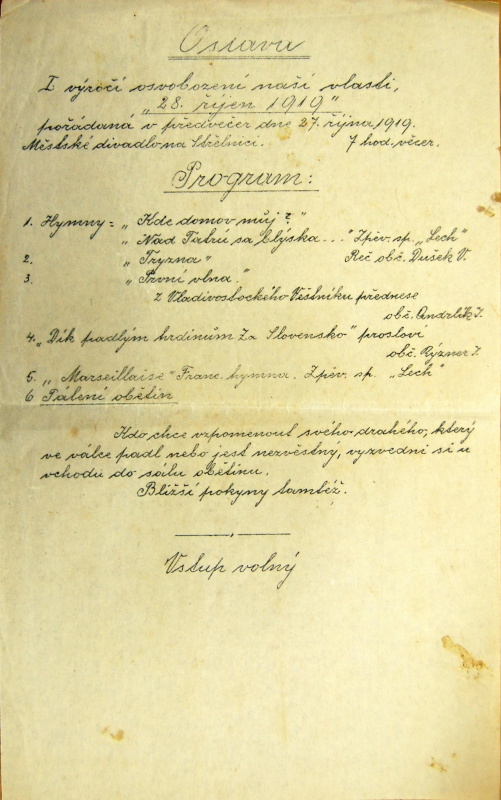 Oslava
I výročí osvobození naší vlasti,
„28. říjen 1919"
pořádaná v předvečer dne 27. října 1919.
Městské divadlo na Střelnici. 7 hod. večer.
Program:
1. Hymny = „Kde domov můj?"
„Nad Tatrú sa blýska..." Zpěv. sp. „Lech"
2. „Tryzna" Řeč obč. Dušek V.
3. „První vlna."
z Vladivostockého Věstníku přednese
obč. Andrlík J.
4. „Dík padlým hrdinům za Slovensko" prosloví
obč. Rýzner J.
5. „Marseillaise" Franc. hymna. Zpěv. sp. „Lech"
6 Pálení obětin
Kdo chce vzpomenout svého drahého, který
ve válce padl nebo jest nezvěstný, vyzvedni si u
vchodu do sálu obětinu.
Bližší pokyny tamtéž.
Vstup volný